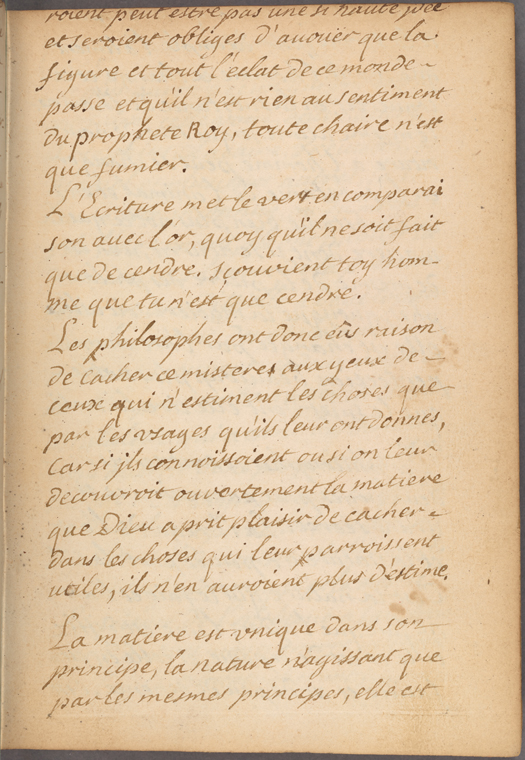 roient peut estre pas une si haute jdée
et seroient obligés d'avouer que la
figure et tout l'éclat de ce monde
passe et qu'il n'est rien au sentiment
du prophete Roy, toute chaire n'est
que fumier.
L'Ecriture met le vert en comparai
son avec l'or, quoy qu'il ne soit fait
que de cendre. sçouvient toy hom-
me que tu n'est que cendre.
Les philosophes ont donc eüs raison
de cacher ce misteres aux yeux de
ceux qui n'estiment les choses que
par les vsages qu'ils leur ont donnés,
Car si jls connoissoient ou si on leur
decouvroit ouvertement la matiere
que Dieu a prit plaisir de cacher
dans les choses qui leur parroissent
utiles, ils n'en auroient plus d'estime.
La matiére est vnique dans son
principe, la nature n'agissant que
par les mesmes principes, elle est